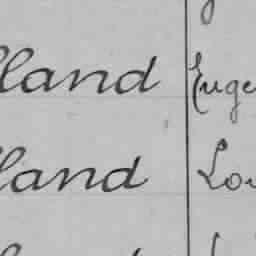 lland Euge
lland Lou